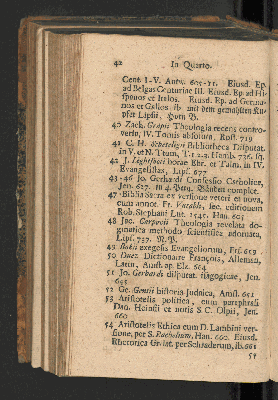 42 In Quarto.
Cent. I-V. Antv. 605-11. Eiusd. Ep.
ad Belgas Centuriae III. Eiusd. Ep. ad Hi-
spanos et Italos. Eiusd. Ep. ad Germa-
nos et Gallos ib. mit dem gemahlten Ku-
pfer Lipsii.
40 Zach. Grapii Theologia recens contro-
versa, IV. Tomis absoluta, Rost. 719
41 C. H. Bibliotheca Disputat.
in V. et N. Testam. T. 1.2.3. Hamb. 736. sq.
42 J. Lightfooti horae Ebr. et Talm. in IV.
Evangelistas, Lips. 677
43-46 Jo. Gerhardi Confessio Catholica,
Jen. 627. in 4. Perg. Bänden complet.
47 Biblia Sacra ex versione veteri et nova,
cum annot. Fr. Vatabli, sec. editionem
Rob. Stephani Lut. 1545. Han. 605
48 Jac. Carpovii Theologia revelata do-
gmatica methodo scientifica adornata,
Lips. 737.
49 exegesis Evangeliorum, Frf 659
50 Duez Dictionaire François, Alleman,
Latin, Amst. ap. Elz. 664
51 Jo. Gerhardi disputat. isagogicae, Jen.
52 Ge. Gentii historia Judaica, Amst. 651
53 Aristotelis politica, cum paraphrasi
Dan. Heinsii et notis S. C. Olpii, Jen.
660
54 Aristotelis Ethica cum D. Lambini ver-
sione, per S. Rachelium, Han. 660. Eiusd.
Rhetorica Gr. lat. per Schraderum, ib. 661